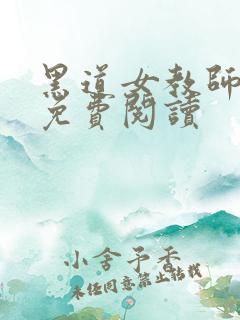 黑道女教師
免費閱讀
小舍予香
未经同意禁止转载